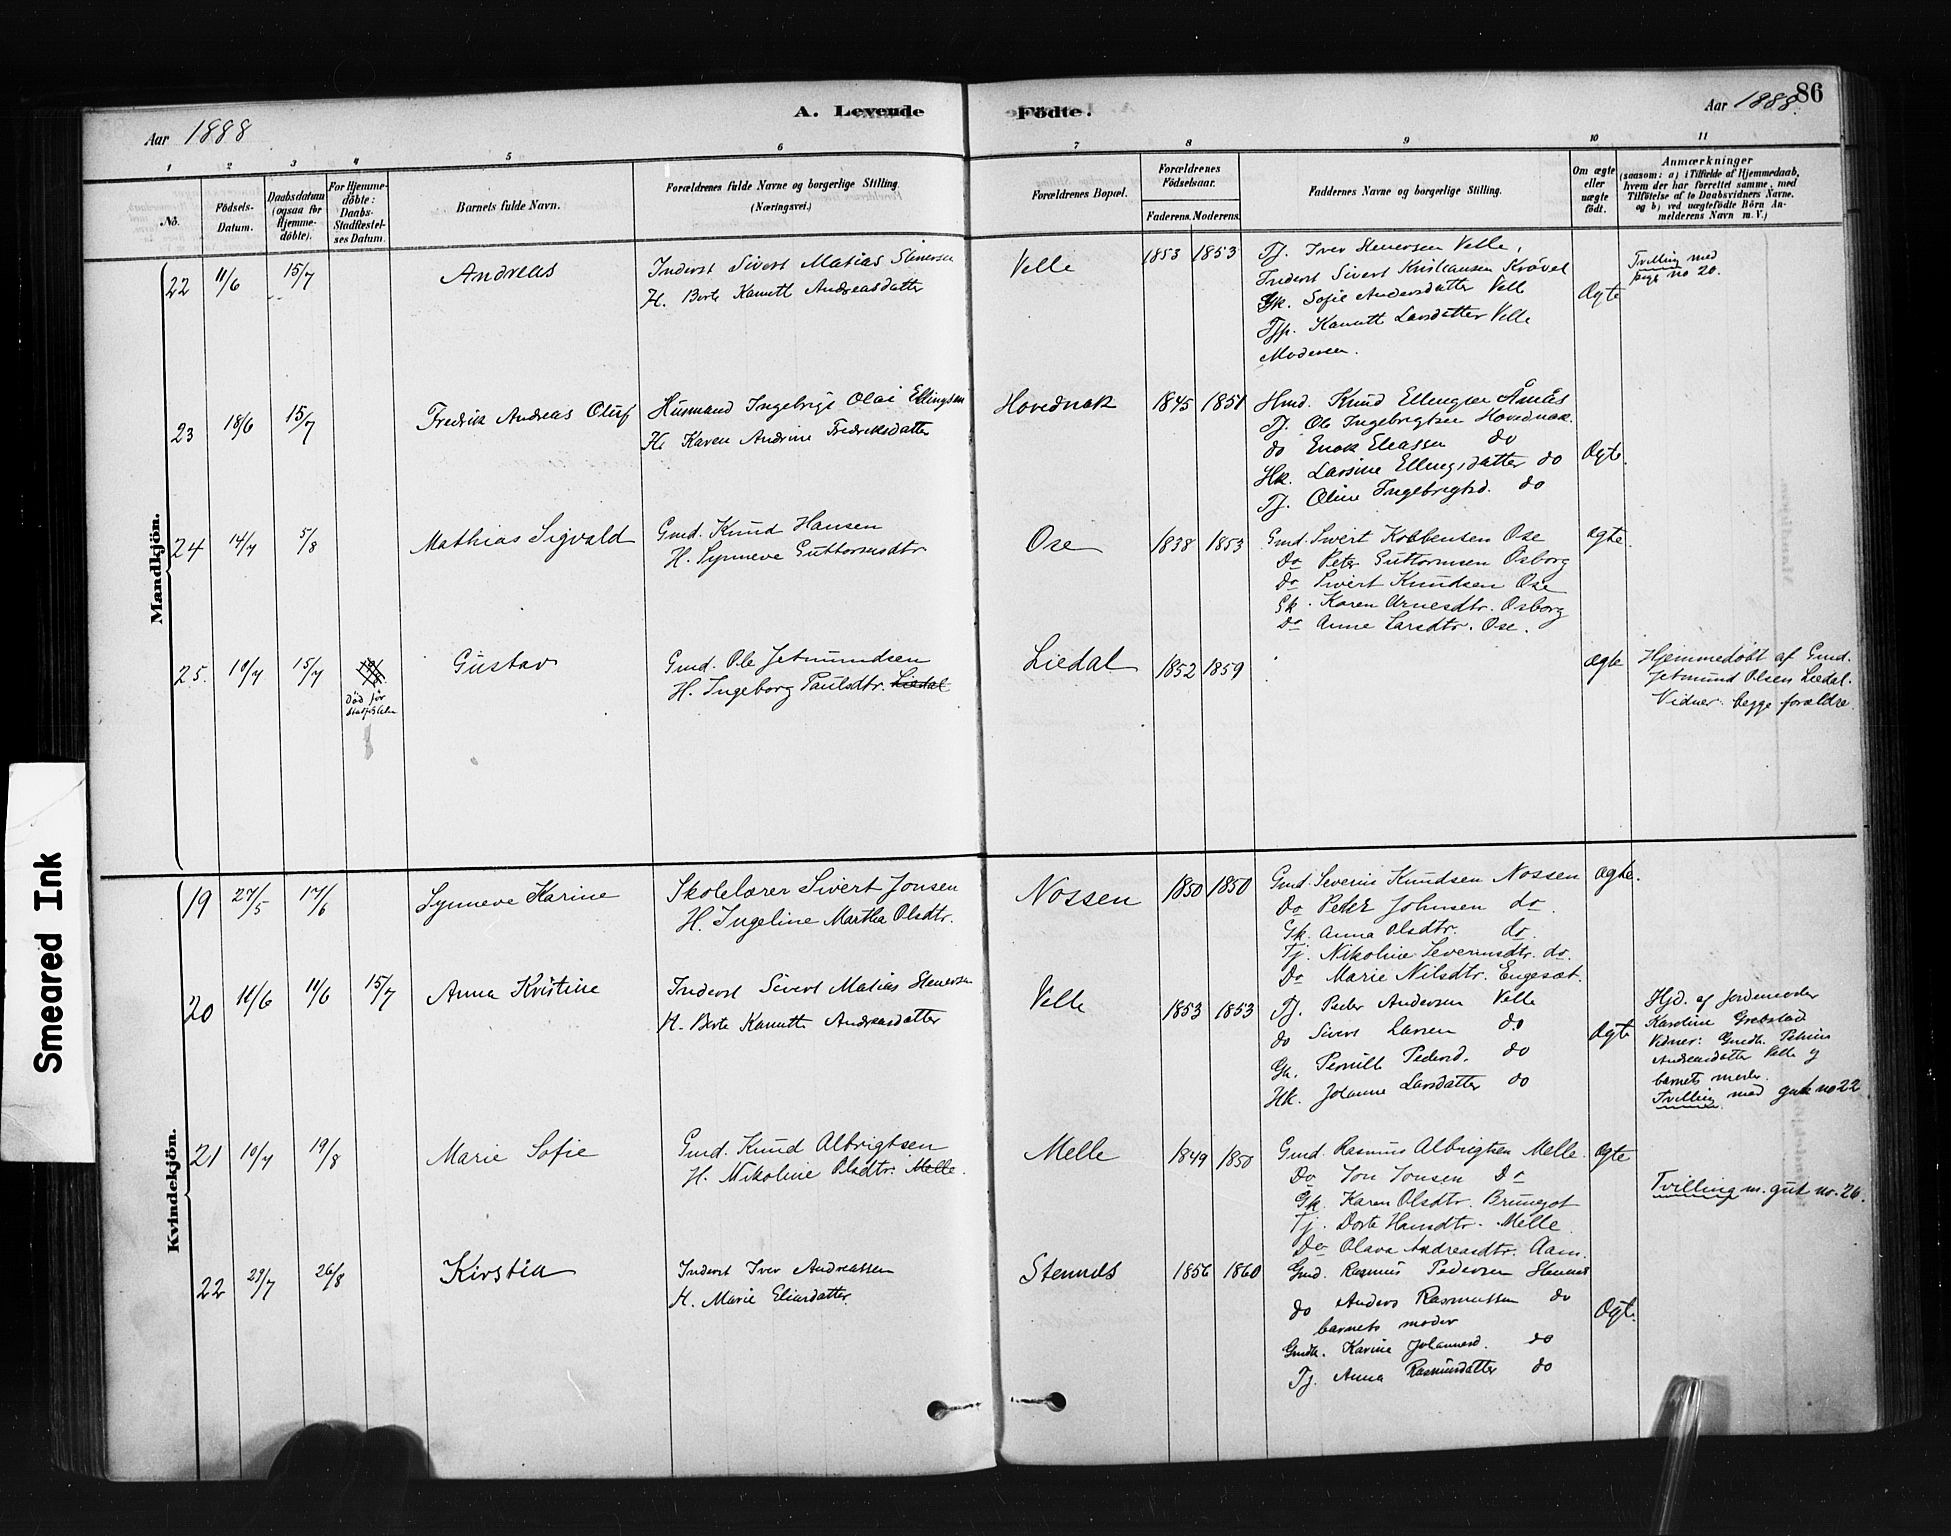 Aar 1888
A. Levende
Födte.
Aar 1888.
86
1 2 3 4 5 6 7 8 9 10 11
No.
Födsels-Datum.
Daabsdatum (ogsaa for Hjemme-döbte).
For Hjemme-döbte: Daabs-Stadfæstel-ses Datum.
Barnets fulde Navn.
Forældrenes fulde Navne og borgerlige Stilling.
(Næringsvei.)
Forældrenes Bopæl.
Forældrenes Födselsaar.
Faderens. Moderens.
Faddernes Navne og borgerlige Stilling.
Om ægte eller uægte födt.
Anmærkninger
(saasom: a) i Tilfælde af Hjemmedaab,
hvem der har forrettet samme, med
Tilföielse af to Daabsvidners Navne,
og b) ved uægtefödte Börn An-
melderens Navn m. V.)
Mandkjön.
22 11/6 15/7 Andreas
Inderst Sivert Matias Stenersen
H. Berte Kanutte Andreasdatter
Velle 1853 1853
Tj. Iver Stenersen Velle,
Inderst Sivert Kristiansen Krövel
Gk. Sofie Andersdatter Velle
Tjp. Kanutte Larsdatter Velle
Moderen.
Ægte
Tvilling med
pige no 20.
23 18/6 15/7 Fredrik Andreas Oluf
Husmand Ingebrigt Olai Ellingsen
H. Karen Andrine Fredriksdatter
Hovednak 1845 1851
Hmd. Knud Ellingsen Åmås
Tj. Ole Ingebrigtsen Hovednak.
do Enok Eleassen do
Hk. Larsine Ellingsdatter do
Tj. Oline Ingebrigtsd. do
Ægte.
24 14/7 5/8 Mathias Sigvald
Gmd. Knud Hansen
H. Synneve Guttormsdtr
Ose 1838 1853
Gmd. Sivert Kolbensen Ose
Do Peter Guttormsen Osborg
Do Sivert Knudsen Ose
Gk. Karen Arnesdtr. Osborg
Do Anne Larsdtr. Ose.
ægte.
25. 10/7 15/7
Död för
stadfæstelsen
Gustav
Gmd. Ole Jetmundsen
H. Ingeborg Paulsdtr. Liedal
Liedal 1852 1859
ægte
Hjemmedöbt af Gmd.
Jetmund Olsen Liedal.
Vidner: begge forældre.
Kvindekjön.
19 27/5 17/6 Synneve Karine
Skolelærer Sivert Jonsen
H. Ingeline Martha Olsdtr.
Nossen 1850 1850
Gmd. Severin Knudsen Nossen
Do Peter Johnsen do.
Gk. Anna Olsdtr. do.
Tj. Nikoline Severinsdtr. do.
Do Marie Nilsdtr. Engesæt.
ægte.
20 11/6 11/6 15/7 Anna Kristine
Inderst Sivert Matias Stenersen
H. Berte Kanutte Andreasdatter
Velle 1853 1853
Tj. Peder Andersen Velle
do Sivert Larsen do
Gk. Pernille Pedersd. do
Hk. Johanne Larsdatter do
Ægte
Hjd. af Jordemoder
Karoline Grebstad
Vidner: Gmdk. Petrine
Andreasdatter Velle og
barnets moder.
Tvilling med gut no 22
21 10/7 19/8 Marie Sofie
Gmd. Knud Albrigtsen
H. Nikoline Olsdtr. Melle.
Melle 1849 1850
Gmd. Rasmus Albrigtsen Melle.
Do Jon Jonsen Do
Gk. Karen Olsdtr. Brungot
Tj. Dorte Hansdtr. Melle
Do Olava Andreasdtr. Aam.
Ægte
Tvilling m. gut no. 26.
22 29/7 26/8 Kirstin
Inderst Iver Andreassen
H. Marie Eliasdatter
Stennes 1856 1860
Gmd. Rasmus Pedersen Stennes
do Anders Rasmussen do
barnets moder
Gmdk. Karine Johannesd. do
Tj. Anna Rasmusdatter do
Ægte.
Smeared Ink